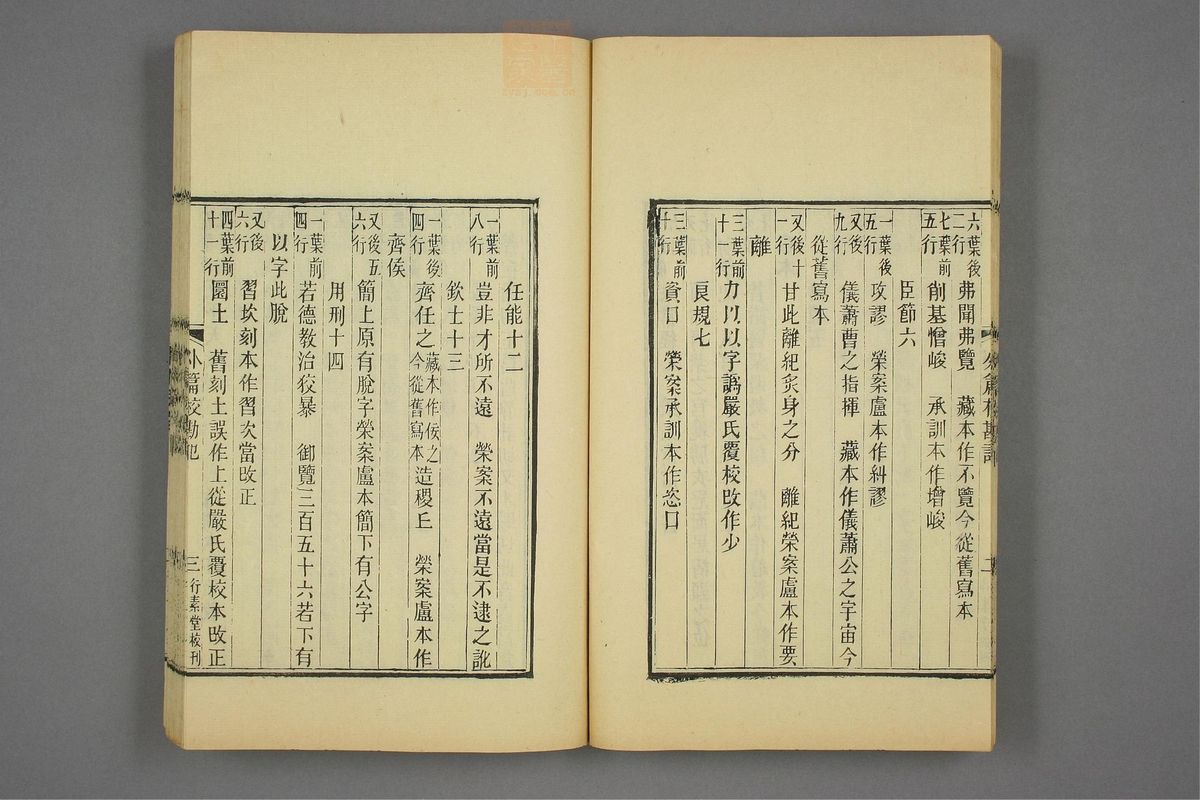 六葉後二行 弗聞弗覽 藏本作不覽今從舊寫本
七葉前五行 削基憎峻 承訓本作增峻
臣節六
一葉後五行 攻謬 榮案盧本作糾謬
又後九行 儀蕭曹之指揮 藏本作儀蕭公之宇宙今
從舊寫本
又後十一行 甘此離紀炙身之分 離紀榮案盧本作要
離
三葉前十一行 力以以字譌嚴氏覆校改作少
良規七
三葉前十行 資口 榮案承訓本作恣口
外篇校勘記 二
任能十二
一葉前八行 豈非才所不遠 榮案不遠當是不逮之訛
欽士十三
一葉後四行 齊任之 藏本作侯之今從舊寫本 造稷丘 榮案盧本作
齊侯
又後五六行 簡上原有脫字榮案盧本簡下有公字
用刑十四
一葉前四行 若德教治狡暴 御覽三百五十六若下有
以字此脫
又後六行 習坎刻本作習次當改正
四葉前十一行 圜土 舊刻土誤作上從嚴氏覆校本改正
外篇校勘記 三 行素堂校刊